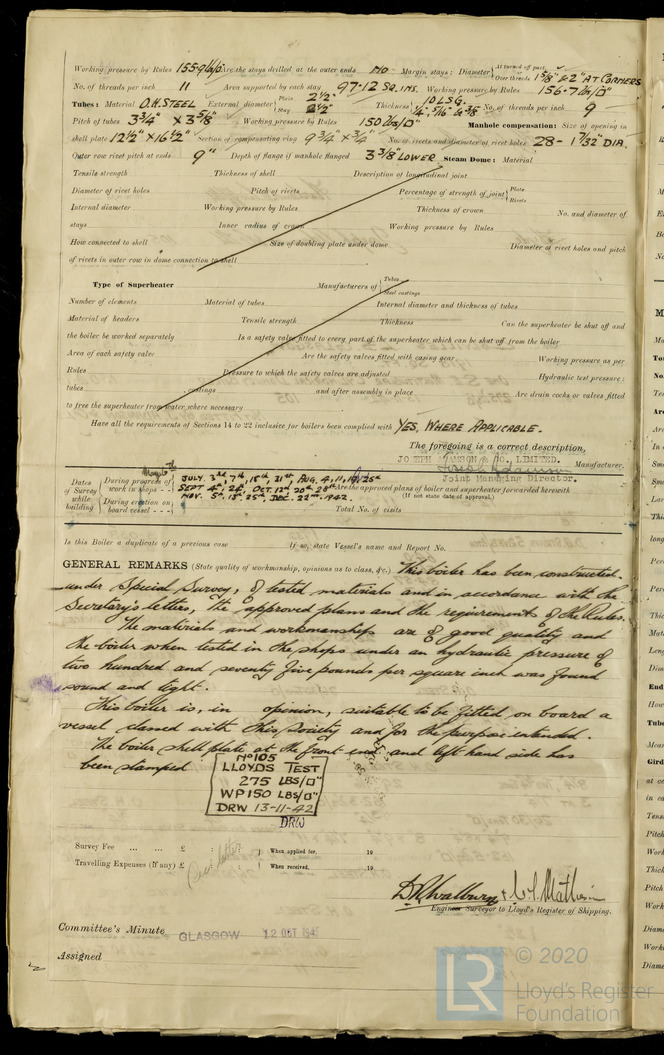 Working pressure by Rules 155·9 lb/□" Are the stays drilled at the outer ends NO Margin stays: Diameter { At turned off part, Over threads 1 5/8" & 2" AT CORNERS
No. of threads per inch 11 Area supported by each stay 97·12 SQ.INS. Working pressure by Rules 156·7 lb/□"
Tubes: Material O.H. STEEL External diameter { Plain 2½" Stay 2½" Thickness { 10 LSG. ¼", 5/16" & 3/8 No. of threads per inch 9
Pitch of tubes 3¾" x 3 5/8" Working pressure by Rules 150 lb/□" Manhole compensation: Size of opening in
shell plate 12½" x 16½" Section of compensating ring 9¾" x ¾" No. of rivets and diameter of rivet holes 28 - 1 7/32" DIA.
Outer row rivet pitch at ends 9" Depth of flange if manhole flanged 3 3/8" LOWER Steam Dome: Material
Tensile strength Thickness of shell Description of longitudinal joint
Diameter of rivet holes Pitch of rivets Percentage of strength of joint { Plate Rivets
Internal diameter Working pressure by Rules Thickness of crown No. and diameter of
stays Inner radius of crown Working pressure by Rules
How connected to shell Size of doubling plate under dome Diameter of rivet holes and pitch
of rivets in outer row in dome connection to shell
Type of Superheater Manufacturers of { Tubes Steel castings
Number of elements Material of tubes Internal diameter and thickness of tubes
Material of headers Tensile strength Thickness Can the superheater be shut off and
the boiler be worked separately Is a safety valve fitted to every part of the superheater which can be shut off from the boiler
Area of each safety valve Are the safety valves fitted with easing gear Working pressure as per
Rules Pressure to which the safety valves are adjusted Hydraulic test pressure:
tubes castings and after assembly in place Are drain cocks or valves fitted
to free the superheater from water where necessary
Have all the requirements of Sections 14 to 22 inclusive for boilers been complied with YES, WHERE APPLICABLE.
The foregoing is a correct description,
JOSEPH ADAMSON & CO. LIMITED.
Joseph Adamson Manufacturer.
Joint Managing Director.
Dates of Survey while building { During progress of work in shops - - JULY. 3rd, 7th, 18th, 21st, AUG. 4, 11, 19, 25th
SEPT 4th, 24th, OCT. 12th 20th 28th Are the approved plans of boiler and superheater forwarded herewith
(If not state date of approval.)
During erection on board vessel - - - NOV. 5th, 13th 25th DEC. 22nd 1942. Total No. of visits
Is this Boiler a duplicate of a previous case If so, state Vessel's name and Report No.
GENERAL REMARKS (State quality of workmanship, opinions as to class, &c.) This boiler has been constructed
under Special Survey, of tested materials and in accordance with the
Secretary's letters, the approved plans and the requirements of the Rules.
The materials and workmanship are of good quality and
the boiler when tested in the shops under an hydraulic pressure of
two hundred and seventy five pounds per square inch was found
sound and tight.
This boiler is, in opinion, suitable to be fitted on board a
vessel classed with this Society and for the purpose intended.
The boiler shell plate at the front end and left hand side has
been stamped
No 105
LLOYDS TEST
275 LBS/□"
WP 150 LBS/□"
DRW 13-11-42
DRW
Survey Fee ... ... £ : : { When applied for, 19
Travelling Expenses (if any) £ : : { When received, 19
See letter
D R Walburn & Mathison
Engineer Surveyor to Lloyd's Register of Shipping.
Committee's Minute GLASGOW 12 OCT 194
Assigned
LR © 2020
Lloyd's Register
Foundation